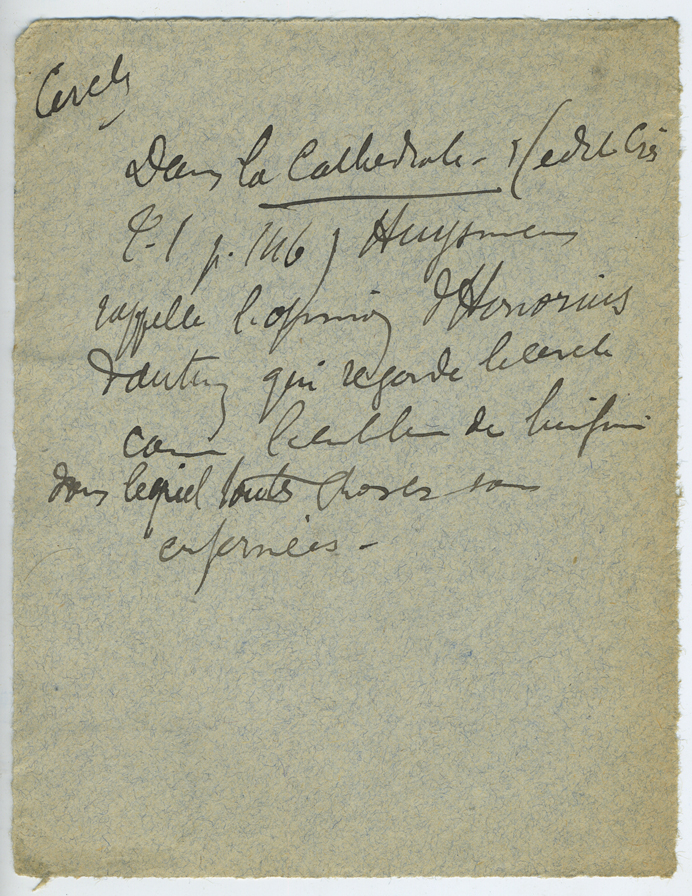 Cercle
Dans la Cathedrale - (edit Crès
T. I p. 146) Huysmans
rappelle l'opinion d'Honorius
d'autun qui regarde le cercle
comme l'emblème de l'infini
dans lequel toutes choses sont
enfermées -